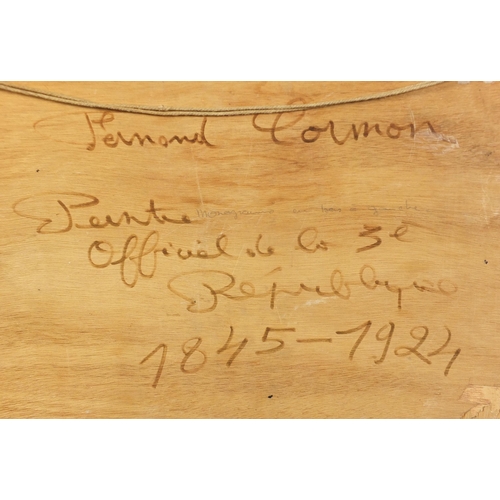 Fernand Cormon
Peintre
Officiel de la 3e
République
1845-1924